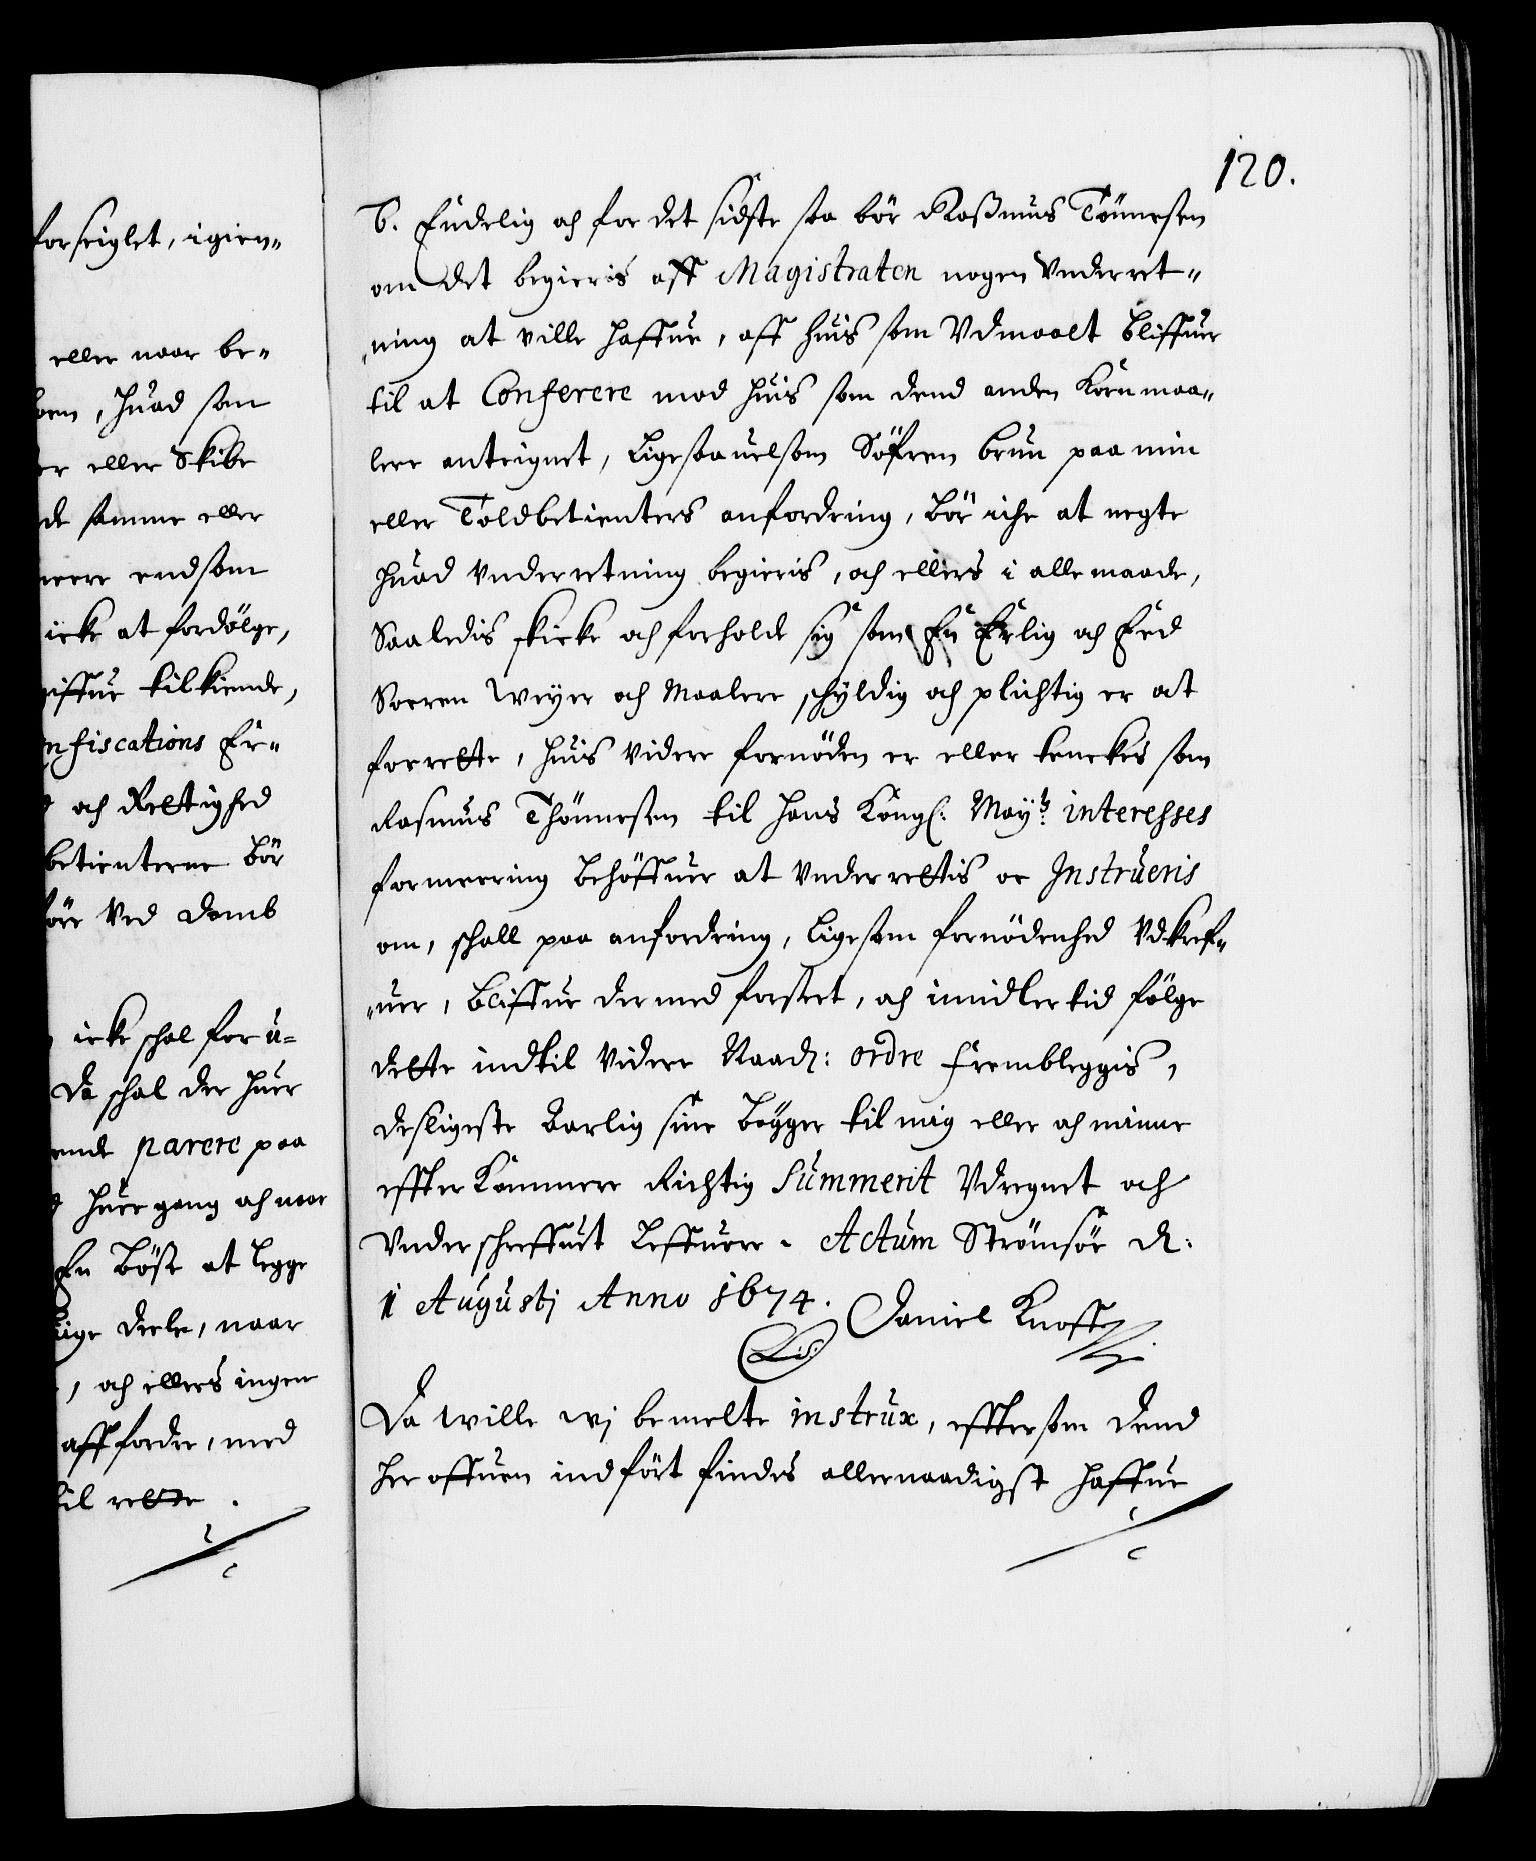 120.
forseiglet, igien„
eller naar be„
som, huad som
eller Skibe
de samme eller
meere endsom
icke at fordölge,
tilkiende,
nfiscations Er„
och Rettighed
betienterne bör
ved domb
icke schal for u-
Da schal der huer
parere paa
huer gang och naar
En Bösse at legge
deele, naar
, och ellers ingen
aff fordre, med
til rette.
6. Endelig och for det sidste saa bör Rasmus Tönnesen
om det begieris aff Magistraten nogen Underret„
„ning at ville haffue, aff huis som Udmaalt bliffuer
til at Conferere mod huis som dend anden Kornmaa„
lere anteignet, Ligesaauelsom Söfren brun paa min
eller Toldbetienters anfordring, bör iche at negte
huad underretning begieris, och ellers i alle maade,
Saaledis skicke och forholde sig som En Erlig och Eed
Soeren Weyer och Maalere schyldig och plichtig er at
forrette, huis videre fornöden er eller tenckes som
Rasmus Thönnesen til Hans Kongl: Mayts: interesses
formeering behöffuer at underrettis oc Instrueris
om, schall paa anfordring, Ligesom fornödenhed Udkref„
„uer, bliffue der med forseet, och imidlertid fölge
dette indtil Videre Naad: ordre frembleggis,
desligeste Aarlig sine böger til mig eller och minne
effterkommere Richtig Summerit Udregnet och
Underschreffuet leffuere. Actum Strömsöe d:
1 Augustj Anno 1674. Daniel Knoff
L:S:
Da wille wj bemelte instrux, efftersom dend
her offuen indfört findes allernaadigst haffue